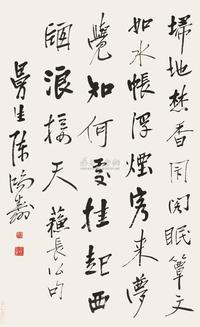 掃地焚香閉閣眠簟文
如水帳浮煙客來夢
覺知何處挂起西
窗浪接天 蘇長公句
曼生陳鴻壽